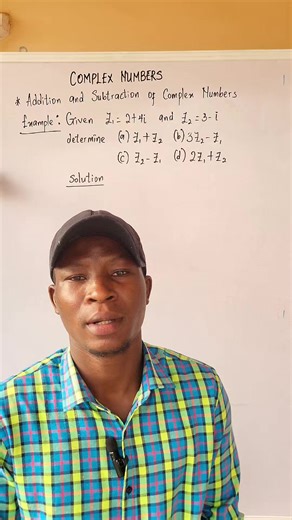 COMPLEX NUMBERS
* Addition and Subtraction of Complex Numbers
Example: Given Z₁ = 2+4i and Z₂ = 3-i
determine (a) Z₁+Z₂ (b) 3Z₂-Z₁
(c) Z₂-Z₁ (d) 2Z₁+Z₂
Solution